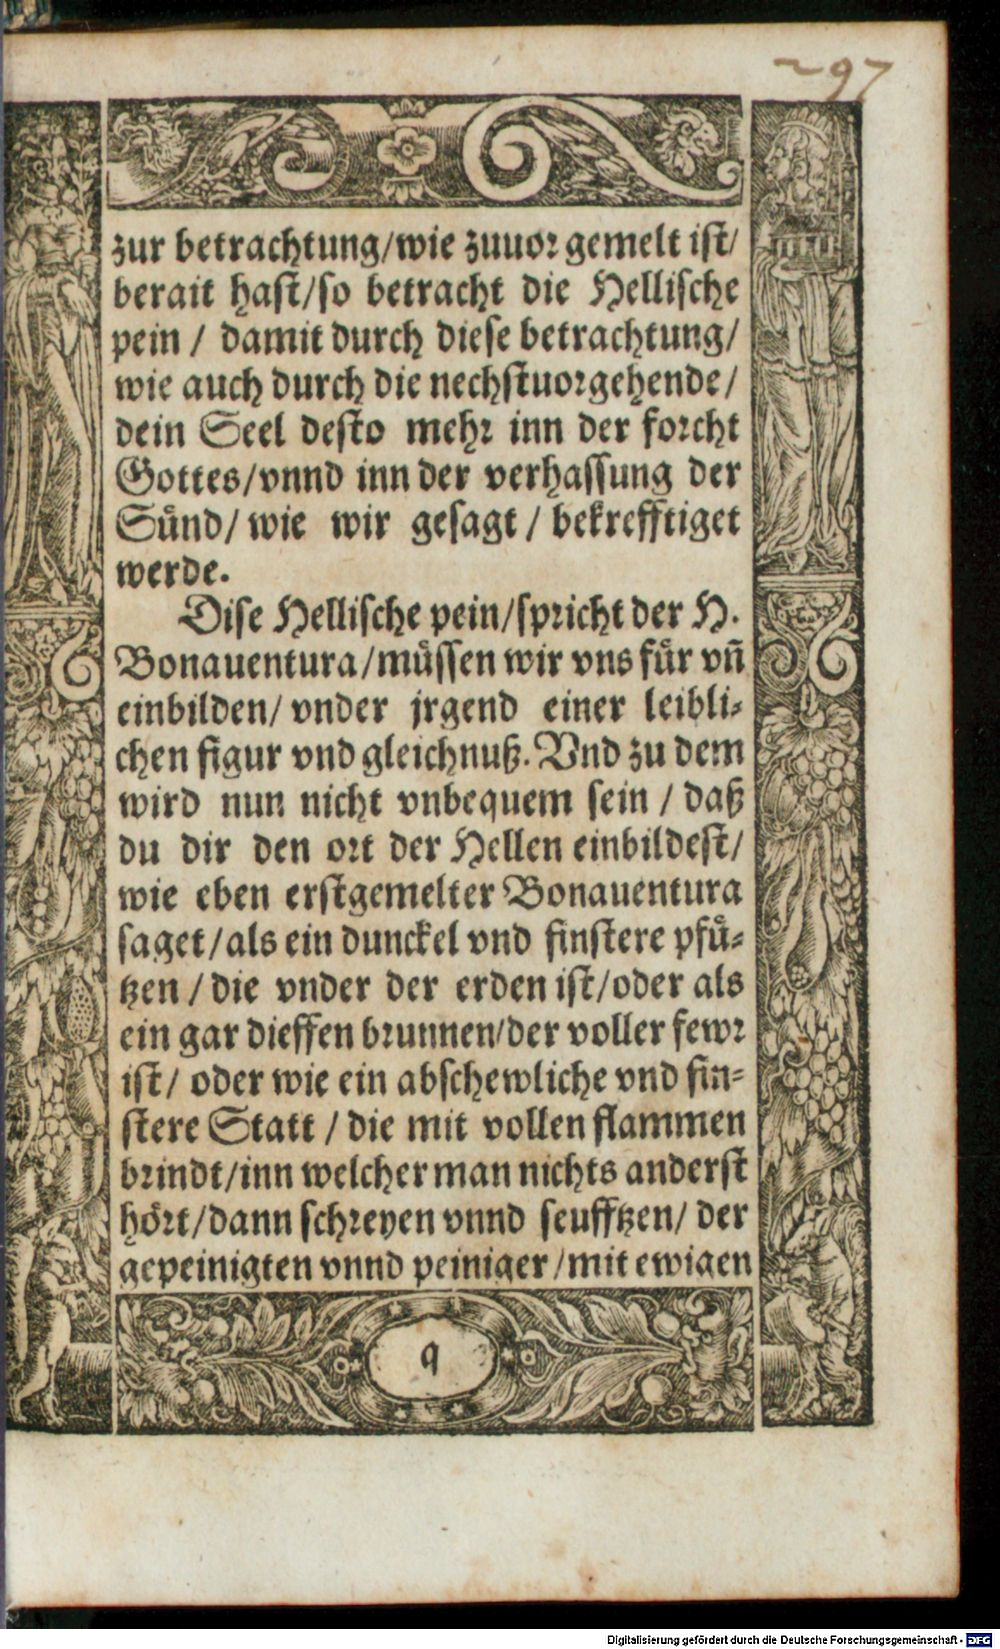 297
zur betrachtung/wie zuuor gemelt ist/
berait hast/so betracht die Hellische
pein / damit durch diese betrachtung/
wie auch durch die nechstuorgehende/
dein Seel desto mehr inn der forcht
Gottes/vnnd inn der verhassung der
Sünd/ wie wir gesagt / bekrefftiget
werde.
Dise Hellische pein/spricht der H.
Bonauentura/müssen wir vns für vñ
einbilden/ vnder jrgend einer leibli-
chen figur vnd gleichnuß. Vnd zu dem
wird nun nicht vnbequem sein / daß
du dir den ort der Hellen einbildest/
wie eben erstgemelter Bonauentura
saget/als ein dunckel vnd finstere pfü-
tzen / die vnder der erden ist/oder als
ein gar dieffen brunnen/der voller fewr
ist/ oder wie ein abschewliche vnd fin-
stere Statt / die mit vollen flammen
brindt/inn welcher man nichts anderst
hört/dann schreyen vnnd seufftzen/ der
gepeinigten vnnd peiniger/mit ewigen
q
Digitalisierung gefördert durch die Deutsche Forschungsgemeinschaft - DFG